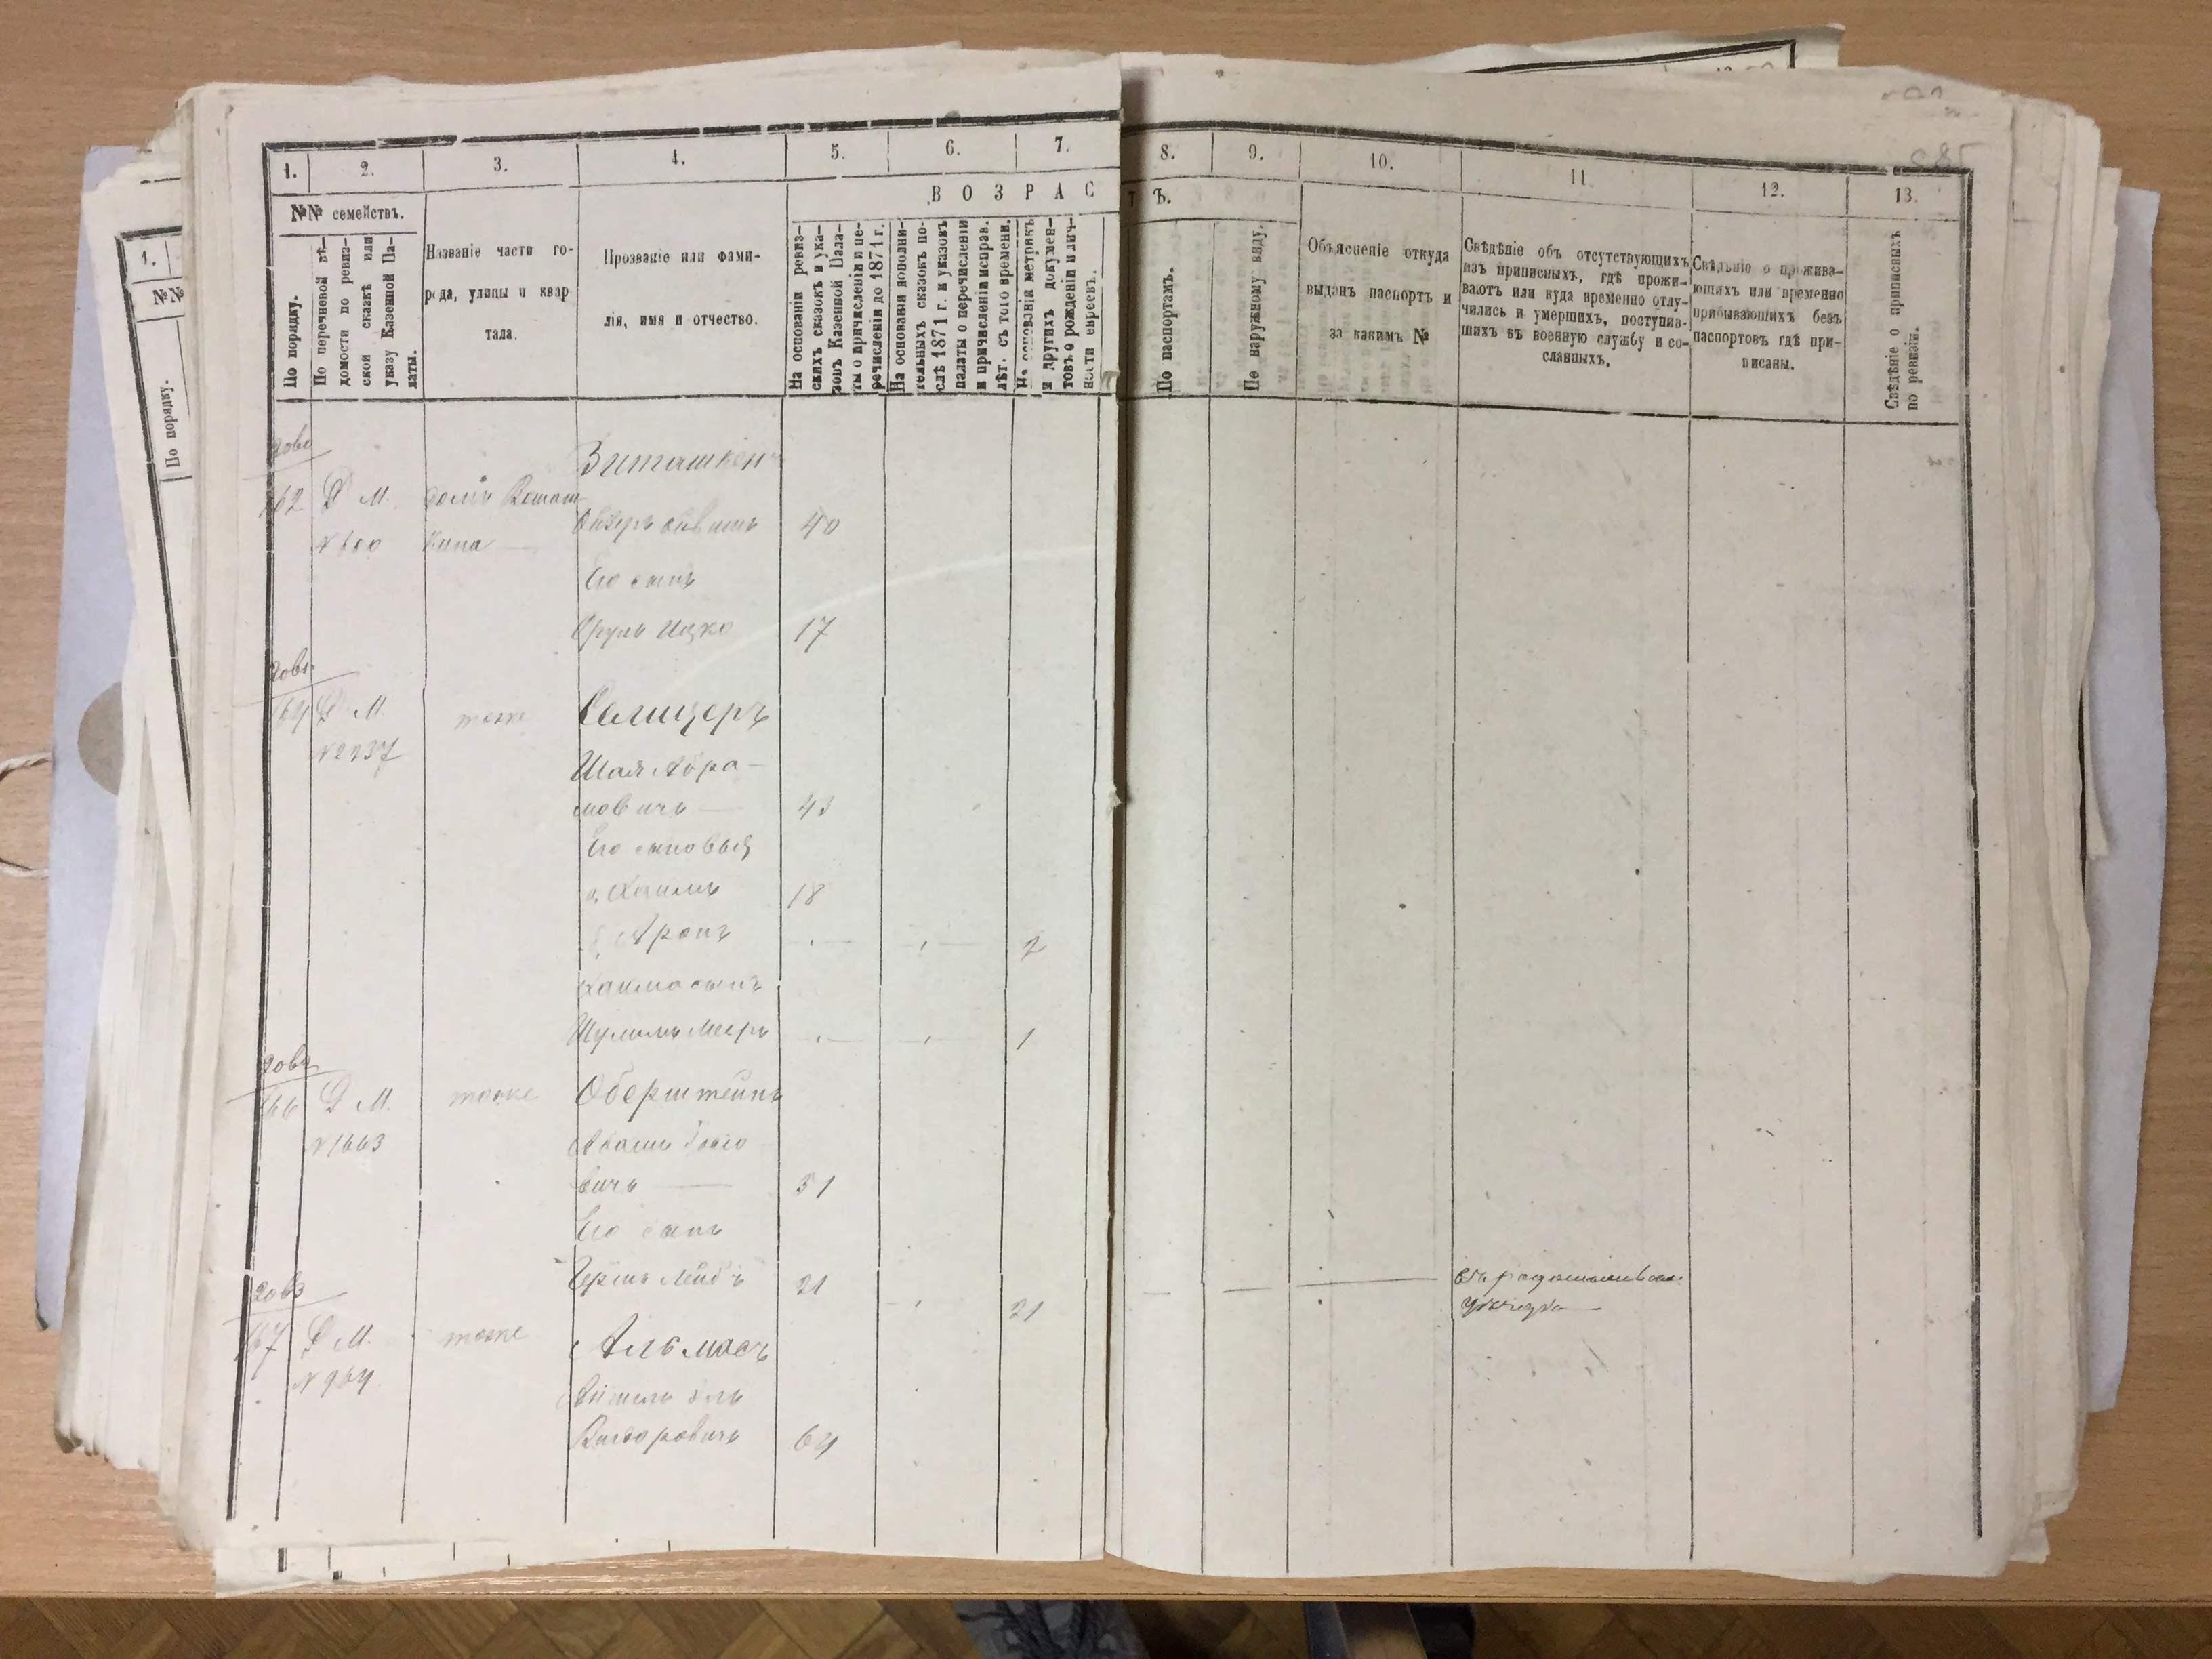 1.
2.
3.
4.
5.
6.
7.
8.
9.
10.
11
12.
13.
В О З Р А С
Т Ъ.
№№ семействъ.
По порядку.
По перечневой вѣ-
домости по ревиз-
ской сказкѣ или
указу Казенной Па-
латы.
Названіе части го-
рода, улицы и квар
тала.
Прозваніе или фами-
лія, имя и отчество.
На основаніи ревиз-
скихъ сказокъ и ука-
зовъ Казенной Пала-
ты о причисленіи и пе-
речисленіи до 1871 г.
На основаніи дополни-
тельныхъ сказокъ по-
слѣ 1871 г. и указовъ
палаты о перечисленіи
и причисленіи исправ.
лѣт. съ того времени.
На основаніи метрикъ
и другихъ докумен-
товъ о рожденіи и лич-
ности евреевъ.
По паспортамъ.
По наружному виду.
Объясненіе откуда
выданъ паспортъ и
за какимъ №
Свѣдѣніе объ отсутствующихъ
изъ приписныхъ, гдѣ прожи-
ваютъ или куда временно отлу-
чились и умершихъ, поступив-
шихъ въ военную службу и со-
сланныхъ.
Свѣдѣніе о прожива-
ющихъ или временно
прибывающихъ безъ
паспортовъ гдѣ при-
писаны.
Свѣдѣніе о приписныхъ
по ревизіи.
1.
№№
По порядку.
2060
162 Д М.
40
Его сынъ
Сруль Ицко 17
2061
164 Д М. тоже Селицеръ
№ 2237
Шая Абра-
мовичъ — 43
Его сыновья
а, Хаимъ 18
Аронъ 2
Хаима сынъ
Шулимъ Мееръ 1
2062
166 Д М. тоже Оберштейнъ
№ 1663
вичъ — 51
Его сынъ
Гершъ Лейбъ 21 21
2063
167 Д М. тоже Альмасъ
№ 964
64